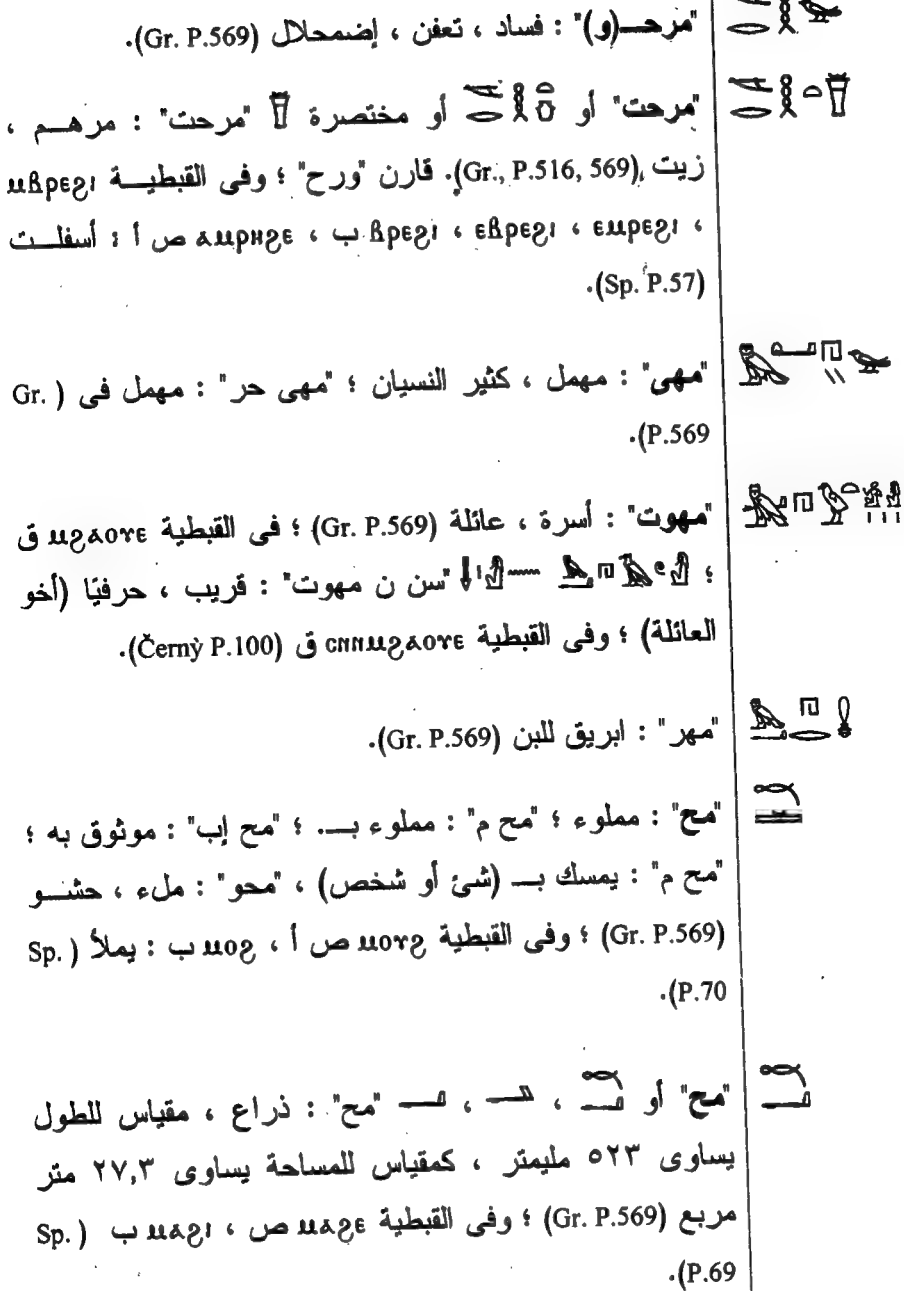 "مرحــ(و)" : فساد ، تعفن ، إضمحلال (Gr. P.569).
"مرحت" أو أو مختصرة "مرحت" : مرهــم ،
زيت (Gr., P.516, 569). قارن "ورح" ؛ وفى القبطيــة ⲙⲃⲣⲉϩⲓ
، ⲉⲙⲣⲉϩⲓ ، ⲉⲃⲣⲉϩⲓ ، ⲃⲣⲉϩⲓ ب ، ⲁⲙⲣⲏϩⲉ ص أ : أسفلــت
(Sp. P.57).
"مهى" : مهمل ، كثير النسيان ؛ "مهى حر" : مهمل فى (Gr.
P.569).
"مهوت" : أسرة ، عائلة (Gr. P.569) ؛ فى القبطية ⲙϩⲁⲟⲩⲉ ق
؛ "سن ن مهوت" : قريب ، حرفيًا (أخو
العائلة) ؛ وفى القبطية ⲥⲛⲛⲙϩⲁⲟⲩⲉ ق (Černỳ P.100).
"مهر" : ابريق للبن (Gr. P.569).
"مح" : مملوء ؛ "مح م" : مملوء بــ. ؛ "مح إب" : موثوق به ؛
"مح م" : يمسك بــ (شئ أو شخص) ، "محو" : ملء ، حشــو
(Gr. P.569) ؛ وفى القبطية ⲙⲟⲩϩ ص أ ، ⲙⲟϩ ب : يملأ (Sp.
P.70).
"مح" أو ، ، "مح" : ذراع ، مقياس للطول
يساوى ٥٢٣ مليمتر ، كمقياس للمساحة يساوى ٢٧,٣ متر
مربع (Gr. P.569) ؛ وفى القبطية ⲙⲁϩⲉ ص ، ⲙⲁϩⲓ ب (Sp.
P.69).